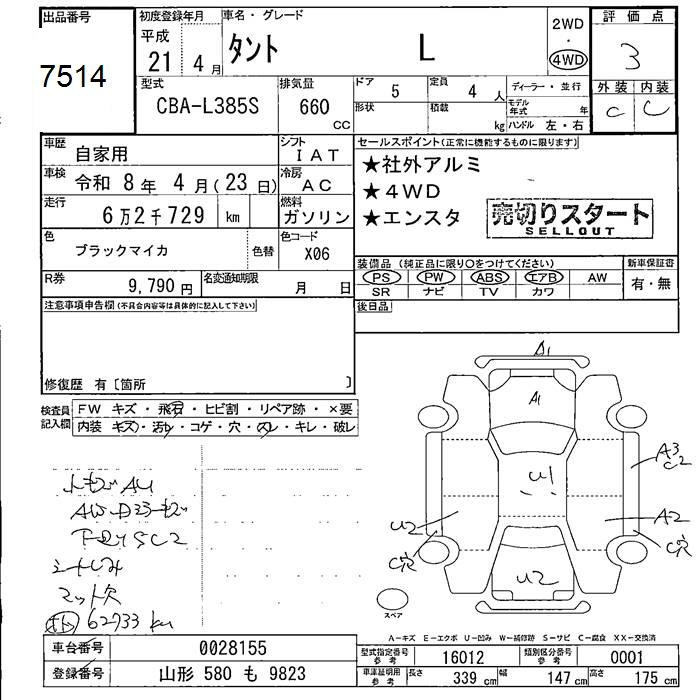 出品番号 初度登録年月 車名・グレード 2WD 評価点
7514 平成 21年 4月 タント L ・ 4WD 3
型式 排気量 ドア 5 定員 4人 ディーラー・並行 外装 内装
CBA-L385S 660 CC 形状 積載 kg モデル年式 年 ハンドル 左・右 C C
車歴 自家用 シフト IAT セールスポイント(正常に機能するものに限ります)
車検 令和 8年 4月(23日) 冷房 AC ★社外アルミ
★4WD
走行 6万2千729 km 燃料 ガソリン ★エンスタ 売切りスタート
SELLOUT
色 ブラックマイカ 色替 色コード X06
装備品 (純正品に限り○をつけてください) 新車保証書
PS PW ABS エアB AW 有・無
R券 9,790円 名変通知期限 月 日 SR ナビ TV カワ
注意事項申告欄(不具合内容等は具体的に記入して下さい) 後日品
修復歴 有〔箇所 〕
検査員記入欄 FW キズ・飛石・ヒビ割・リペア跡・×要
内装 キズ・汚レ・コゲ・穴・スレ・キレ・破レ
A1
A1
A3
C2
U1
U2 A2
C穴 C穴
U2
シートしみ
マット欠
62733 km
スペア
A-キズ E-エクボ U-凹み W-補修跡 S-サビ C-腐食 XX-交換済
車台番号 0028155 型式指定番号 参考 16012 類別区分番号 参考 0001
登録番号 山形 580 も 9823 車庫証明用 参考 長さ 339 cm 幅 147 cm 高さ 175 cm